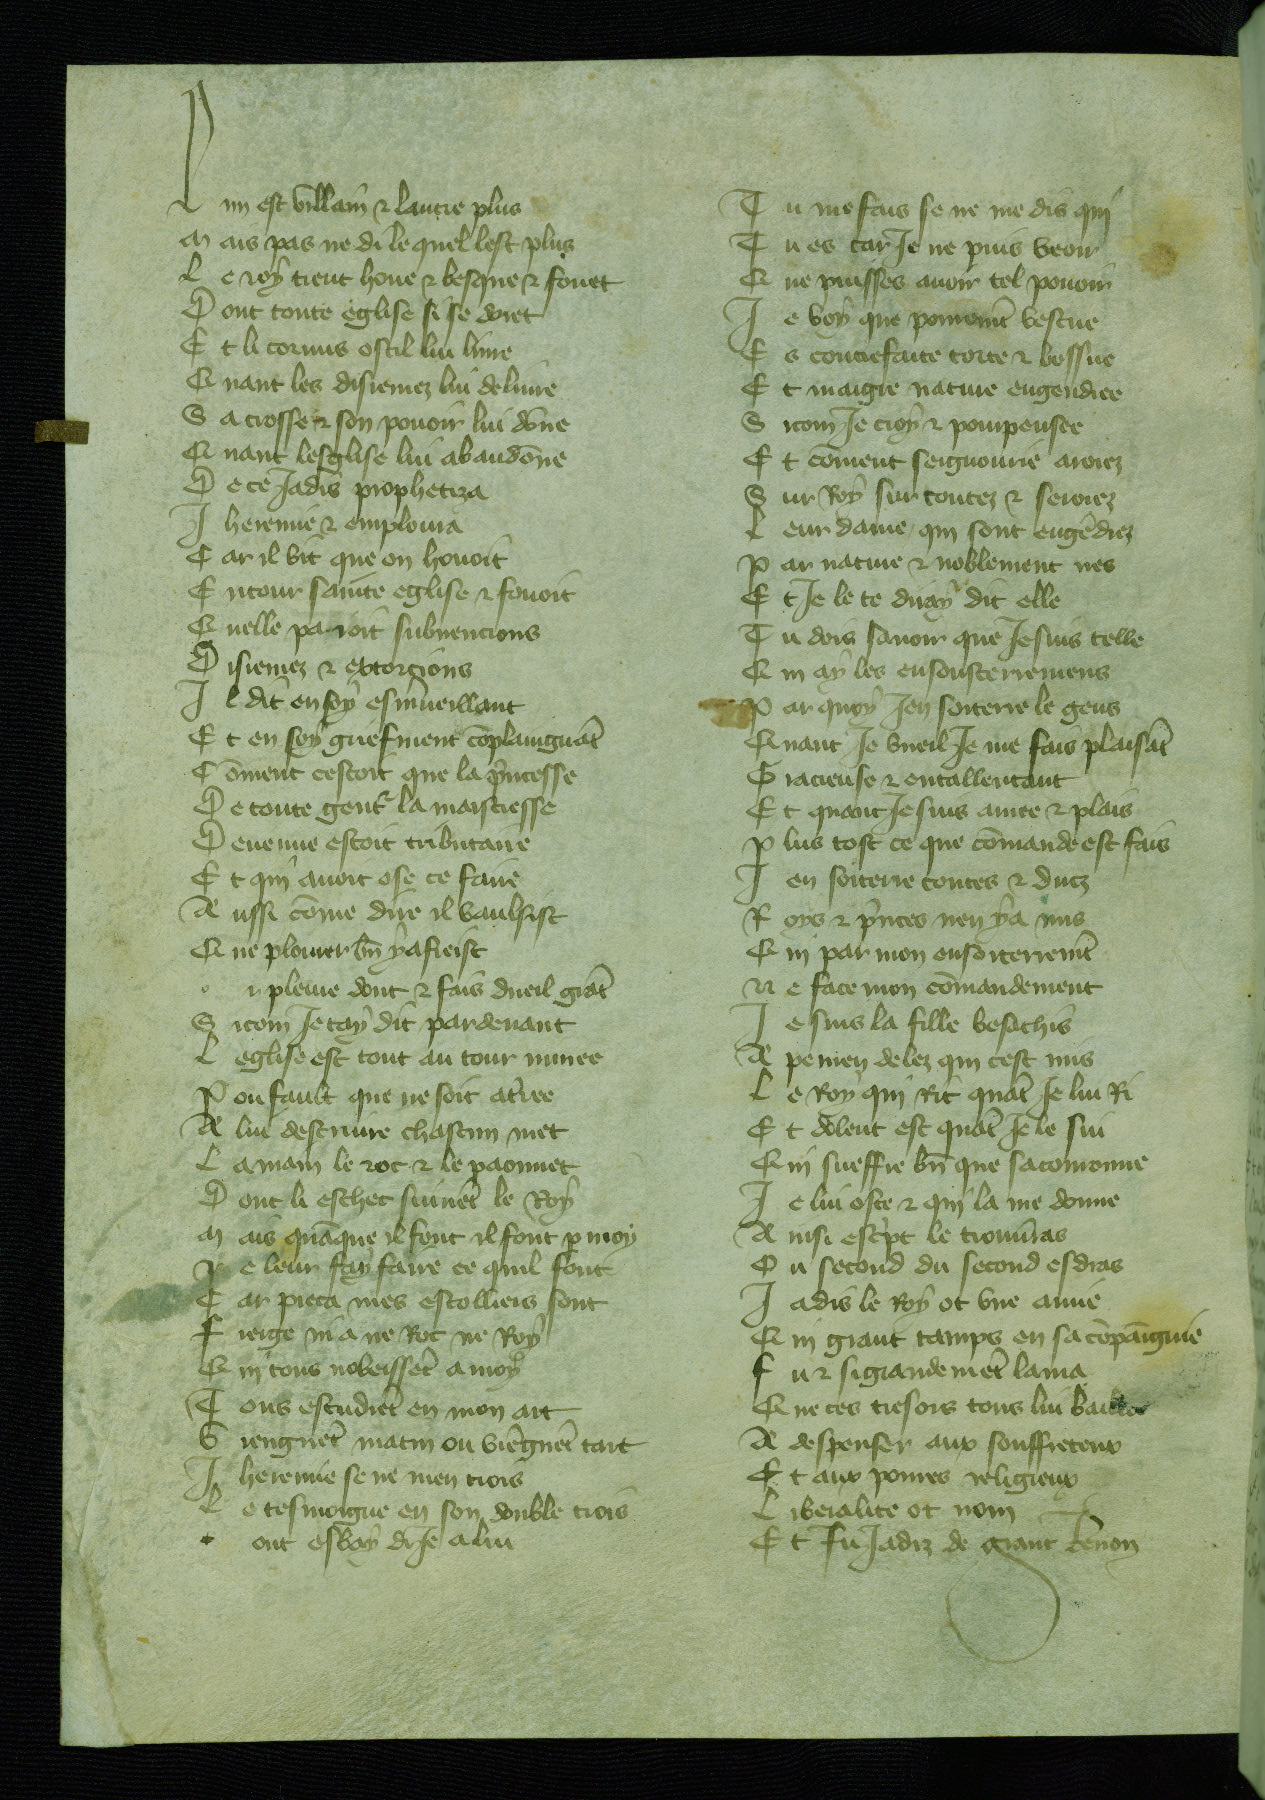 L un est villain & lautre plus
M ais pas ne di le quel lest plus
L e roy tient houe & besque & fouet
D ont toute eglise si se doiet
E t li cornus ostil lui liure
Q uant les disiemez lui deliure
S a crosse & son pouoir lui dōne
Q uant leglise lui abandōne
D e ce Jadis prophetiza
J heremie & emploura
C ar il vit que on houoit
E ntour sainte eglise & fouoit
Q uelle paioit subuencions
D isiemez & extorcions
I l dit en soy esmueillant
E t en soy griefment cōplaingnāt
C ōment cestoit que la p̄ncesse
D e toute gent la maistresse
D euenue estoit tributaire
E t qui auoit ose ce faire
A ussi cōme dire il vaulsist
Q ue plourer bn̄ y afieist
u pleure dont & fais dueil grāt
S icom Je tay dit par deuant
L eglise est tout au tour minee
P ou fault que ne soit at̄ree
A lui destruire chascun met
L a main le roc & le paonnet
D ont li eschec suiuēt le Roy
M ais quāque il font il font p̄ moy
J e leur fay faire ce quil font
C ar pieca mes escolliers sont
F ierge ni a ne Roc ne Roy
Q ui tous nobeissēt a moy
T ous estudiēt en mon art
V iengnēt matin ou viēgnēt tart
J heremie se ne men crois
L e tesmoigne en son double trois
ont esbay di Je a lui
T u me fais se ne me dis qui
T u es car Je ne puis veoir
Q ue puisses auoir tel pouoir
J e voy que pourem̄t vestue
E s contrefaite torte & bossue
E t maigre nature engendree
S icom Je croy & pompensee
E t cōment seignourie aroiez
S ur Roy sur contez & seroiez
L eur dame qui sont engēdrez
P ar nature & noblement nes
E t Je le te diray dit elle
T u dois sauoir que Je suis celle
Q ui ay les ensousterremens
P ar quoy Jen sorterre le gens
Q uant Je vueil Je me fais plaisāt
G racieuse & entallentant
E t quant Je suis ainte & plais
P lus tost ce que cōmande est fais
J en sorterre contes & ducz
R oys & p̄nces nen y a nus
Q ui par mon ensorterrem̄t
N e face mon cōmandement
J e suis la fille besachis
A pemen delez qui cest mis
L e Roy qui Rit quāt Je lui Ri
E t dolent est quāt Je le sui
Q ui sueffre bn̄ que sa coronne
J e lui oste & qui la me donne
A insi esc̄pt le trouūas
O u second du second esdras
J adis le Roy ot vne amie
Q ui grant tamps en sa cōpāignie
F u & si grandemēt lama
Q ue ces tresors tous lui bailla
A despenser aux souffreteux
E t aux poures religieux
L iberalite ot nom
E t fu Jadiz de grant Renon